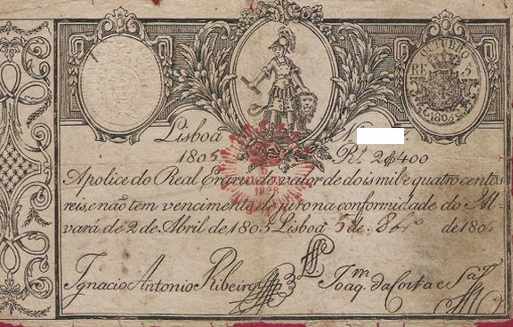 OUTUBRO
RE 5
1805
Lisboa N
1805 Rs. 2$400
Apolice do Real Erario do valor de dois mil e quatro centos
reis, e não tem vencimento de juro na conformidade do Al-
vará de 2 de Abril de 1805 Lisboa 5 de 8bro de 180
Ignacio Antonio Ribeiro Joaq. da Costa e